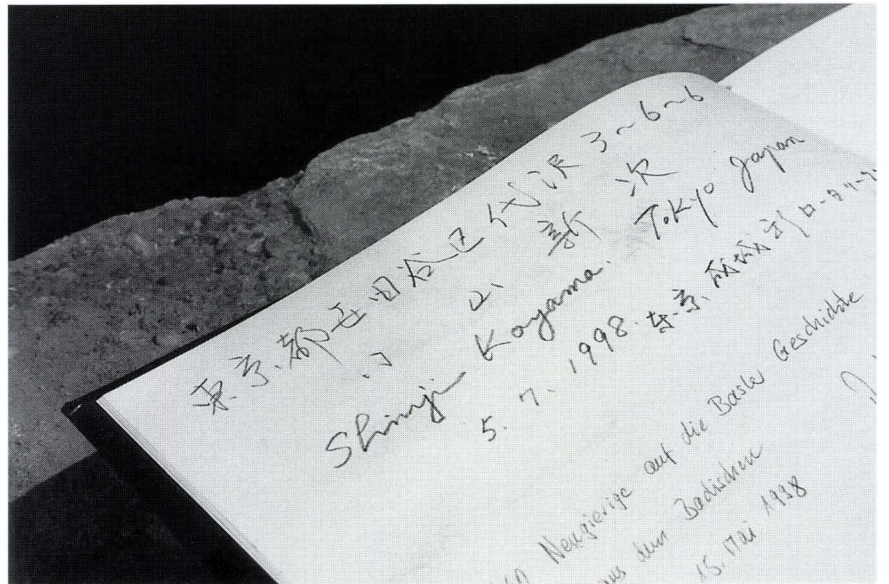 東京都世田谷区代沢3~6~6
小山 新次
Shinji Koyama. Tokyo Japan
5. 7. 1998. 东京
Neugierige auf die Basler Geschichte
aus dem Badischen
15. Mai 1998